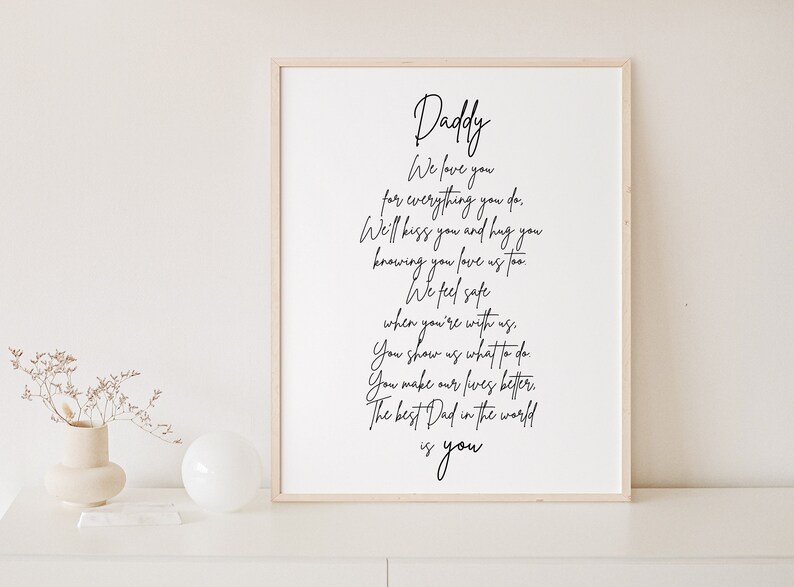 Daddy
We love you
for everything you do,
We'll kiss you and hug you
knowing you love us too.
We feel safe
when you're with us,
You show us what to do.
You make our lives better,
The best Dad in the world
is you